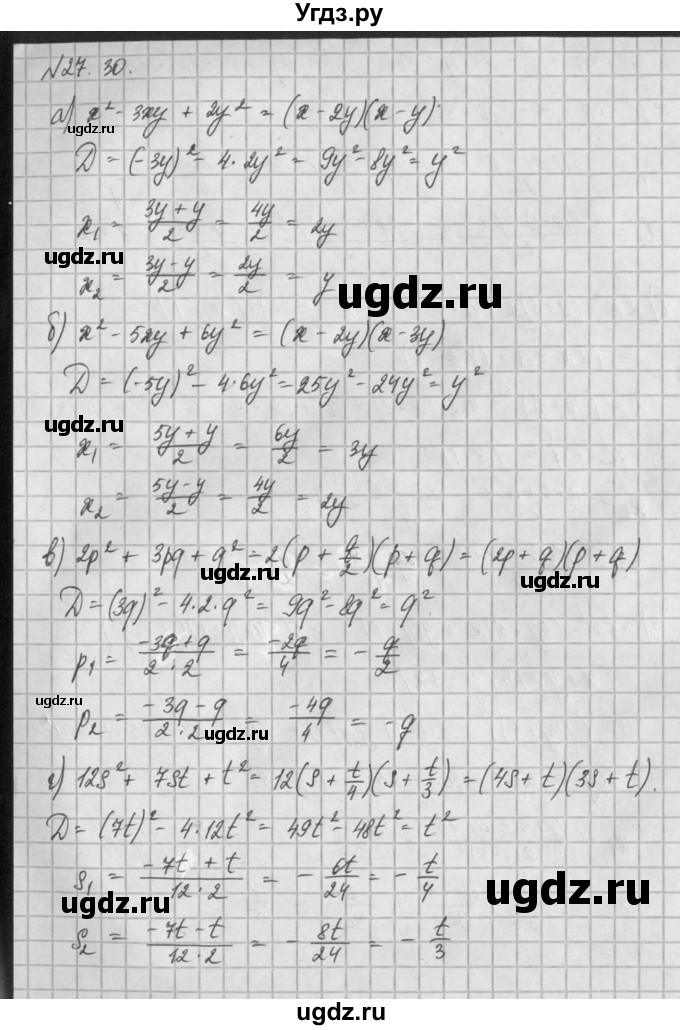 Угдз.ру
№27.30.
а) x² - 3xy + 2y² = (x - 2y)(x - y).
D = (-3y)² - 4·2y² = 9y² - 8y² = y²
x₁ = (3y + y)/2 = 4y/2 = 2y
ugdz.ru
x₂ = (3y - y)/2 = 2y/2 = y
ugdz.ru
б) x² - 5xy + 6y² = (x - 2y)(x - 3y)
D = (-5y)² - 4·6y² = 25y² - 24y² = y²
ugdz.ru
x₁ = (5y + y)/2 = 6y/2 = 3y
x₂ = (5y - y)/2 = 4y/2 = 2y
в) 2p² + 3pq + q² = 2(p + q/2)(p + q) = (2p + q)(p + q)
ugdz.ru ugdz.ru
D = (3q)² - 4·2·q² = 9q² - 8q² = q²
p₁ = (-3q + q)/(2·2) = -2q/4 = - q/2
ugdz.ru
p₂ = (-3q - q)/(2·2) = -4q/4 = -q
ugdz.ru
г) 12s² + 7st + t² = 12(s + t/4)(s + t/3) = (4s + t)(3s + t).
D = (7t)² - 4·12t² = 49t² - 48t² = t²
s₁ = (-7t + t)/(12·2) = - 6t/24 = - t/4
ugdz.ru
ugdz.ru
s₂ = (-7t - t)/(12·2) = - 8t/24 = - t/3
ugdz.ru